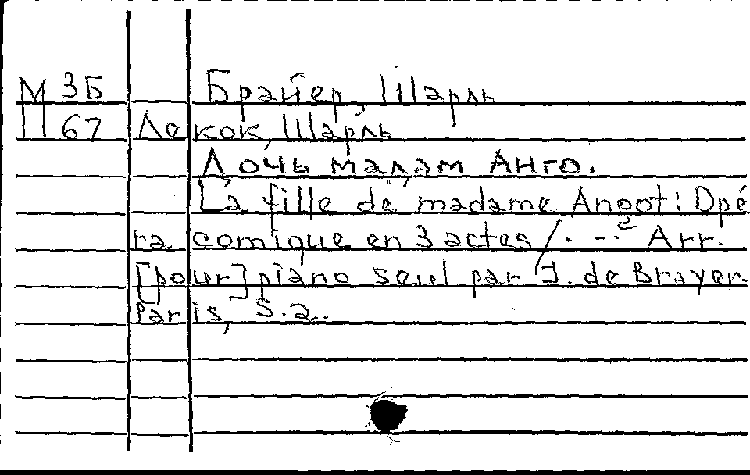 М 3Б Брайер, Шарль
П 67 Лекок, Шарль
Дочь мадам Анго.
La fille de madame Angot: Opé
ra comique en 3 actes / . - - Arr.
[pour] piano seul par J. de Brayer
Paris, S.a..